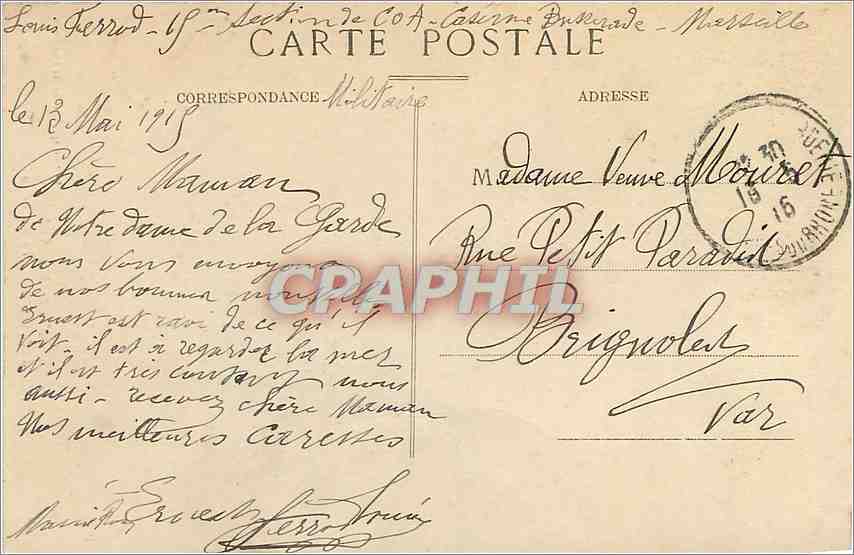 Louis Ferrod - 15me Section de COA - Caserne Busserade - Marseille
CARTE POSTALE
CORRESPONDANCE Militaire
ADRESSE
le 13 Mai 1915
Chère Maman
de Notre dame de la Garde
nous vous envoyons
de nos bonnes nouvelles
Ernest est ravi de ce qu'il
voit - il est à regarder la mer
et il est très content nous
aussi - recevez chère Maman
Nos meilleures caresses
Ernest
Ferrod Louis
Madame Veuve Mouret
Rue Petit Paradis
Brignoles
Var
30
16
16
DU RHONE
CPAPHIL